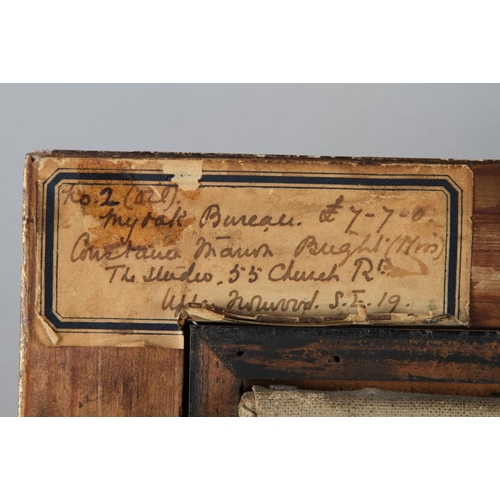 No. 2 (Oil).
My oak Bureau. £7-7-0.
Constance Marion Bright (Mrs)
The Studio. 55 Church Rd.
Upper Norwood. S.E.19.